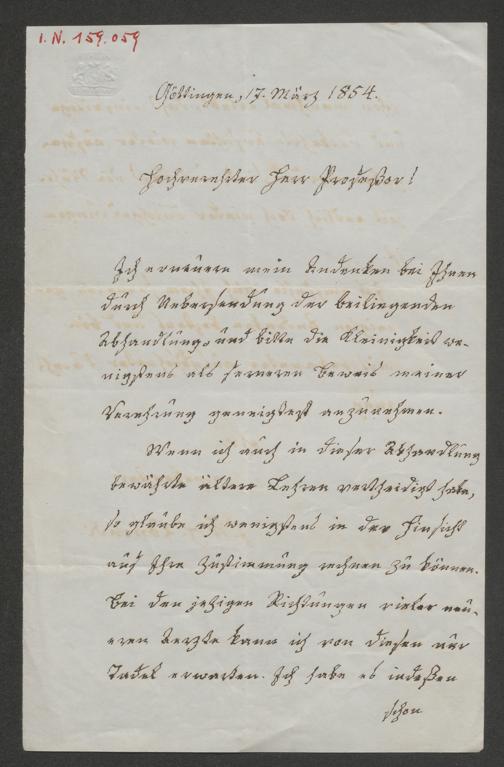 I. N. 159.059
Göttingen, 17. März 1854.
Hochverehrter Herr Profeßor!
Ich erneuere mein Andenken bei Ihnen
durch Uebersendung der beiliegenden
Abhandlung, und bitte die Kleinigkeit we-
nigstens als ferneren Beweis meiner
Verehrung geneigtest anzunehmen.
Wenn ich auch in dieser Abhandlung
bewährte ältere Lehren vertheidigt habe,
so glaube ich wenigstens in der Hinsicht
auf Ihre Zustimmung rechnen zu können.
Bei den jetzigen Richtungen vieler neu-
eren Aerzte kann ich von diesen nur
Tadel erwarten. Ich habe es indeßen
schon